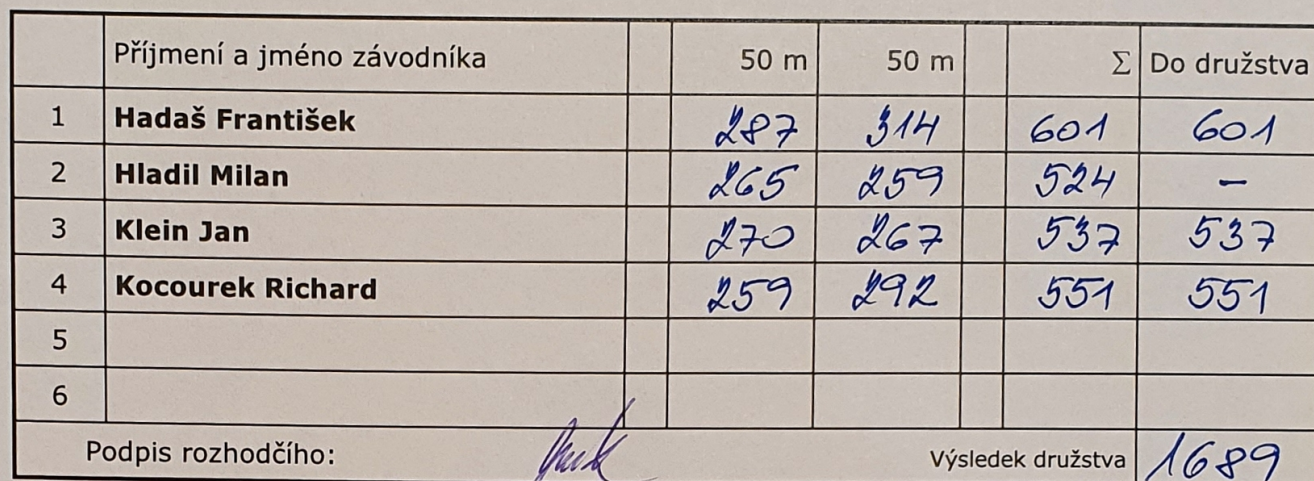 Příjmení a jméno závodníka 50 m 50 m Σ Do družstva
1 Hadaš František 287 314 601 601
2 Hladil Milan 265 259 524 –
3 Klein Jan 270 267 537 537
4 Kocourek Richard 259 292 551 551
5
6
Podpis rozhodčího: Výsledek družstva 1689